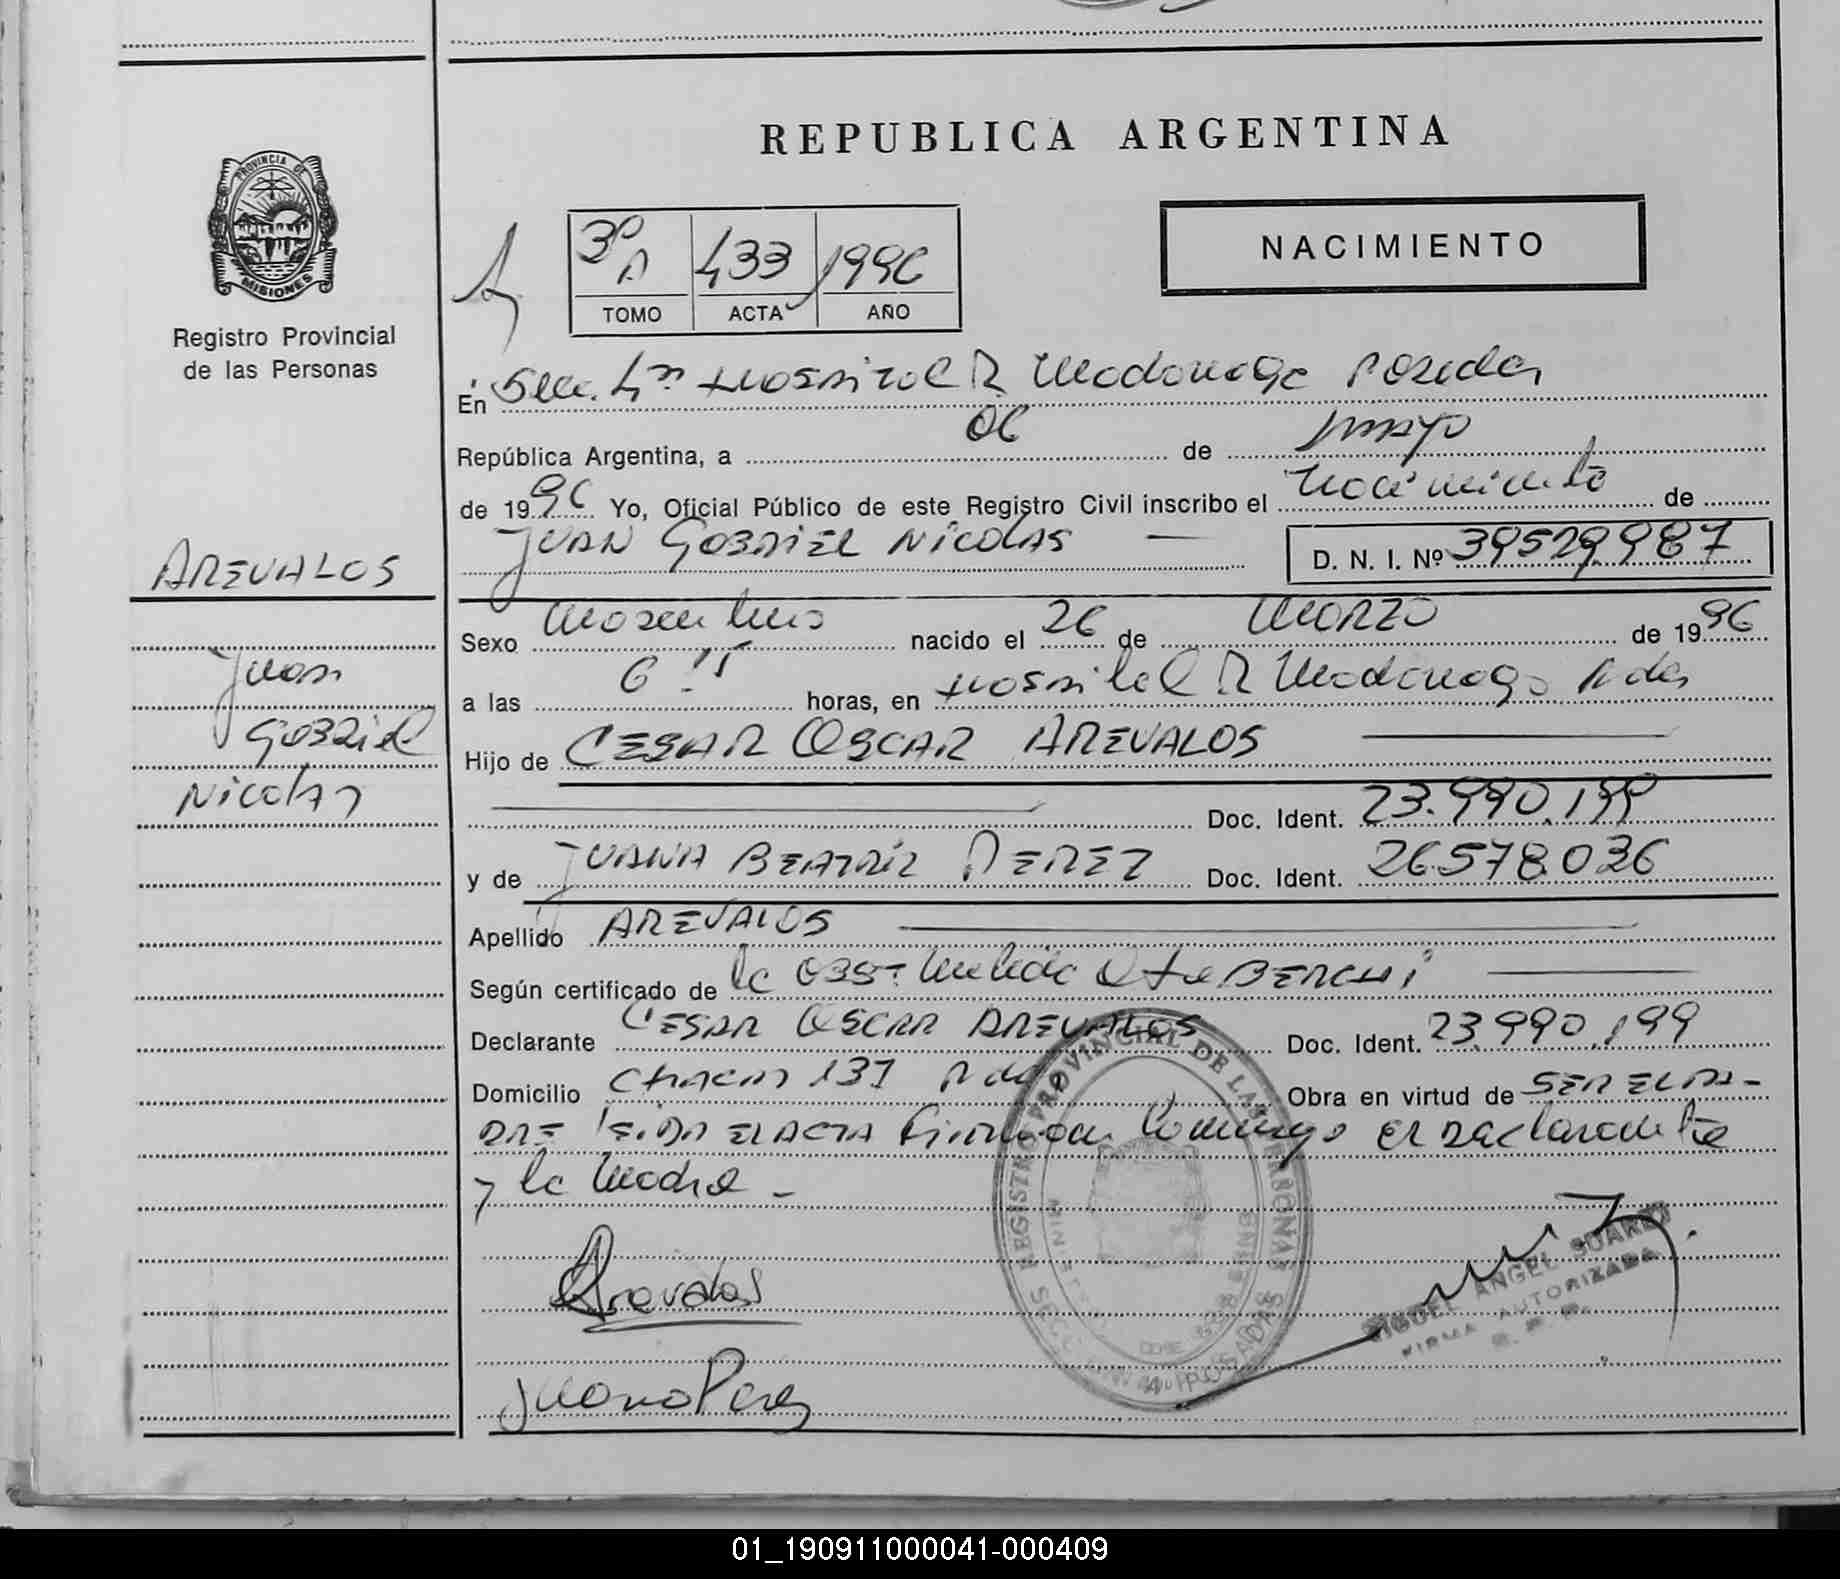 REPUBLICA ARGENTINA
PROVINCIA DE
MISIONES
Registro Provincial
de las Personas
3º A 433 1996
TOMO ACTA AÑO
NACIMIENTO
En Secc. 4ª Hospital R Madariaga Posadas
República Argentina, a 06 de mayo
de 1996 Yo, Oficial Público de este Registro Civil inscribo el nacimiento de
JUAN GABRIEL NICOLAS D. N. I. Nº 39529.987
AREVALOS
Juan
Gabriel
Nicolas
Sexo Masculino nacido el 26 de Marzo de 1996
a las 6 horas, en Hospital R Madariaga Pdas
Hijo de CESAR OSCAR AREVALOS
Doc. Ident. 23.990.199
y de JUANA BEATRIZ PEREZ Doc. Ident. 26578.036
Apellido AREVALOS
Según certificado de la Obst. BERCHI
Declarante CESAR OSCAR AREVALOS Doc. Ident. 23.990.199
Domicilio Chacra 137 Pdas Obra en virtud de SER EL PA-
DRE leida EL ACTA Firman Conmigo el declarante
y la Madre -
Arevalos
Juana Perez
REGISTRO PROVINCIAL DE LAS PERSONAS
POSADAS
MIGUEL ANGEL SUAREZ
FIRMA AUTORIZADA
01_190911000041-000409